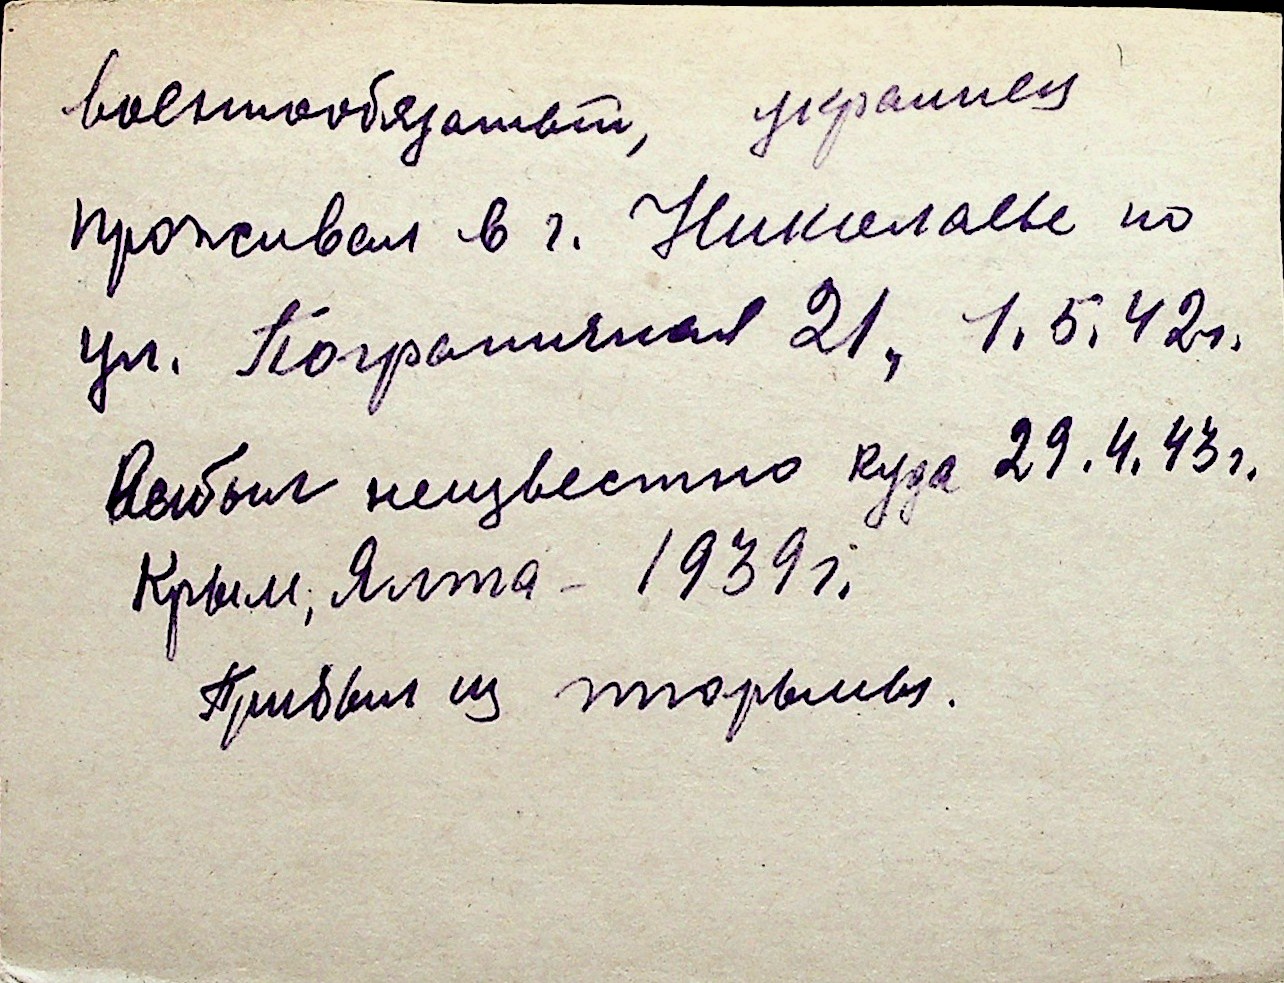 военнообязаный, украинец
проживал в г. Николаеве по
ул. Пограничная 21, 1.5.42г.
Выбыл неизвестно куда 29.4.43г.
Крым, Ялта - 1939г.
Прибыл из тюрьмы.